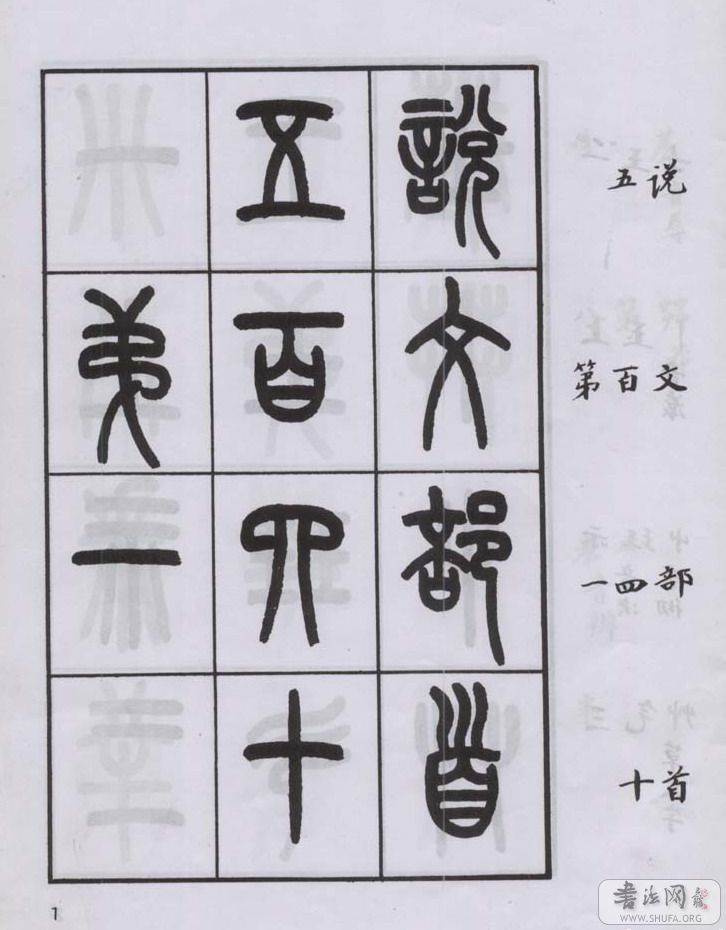 說文部首
五百四十
弟一
说文部首
五百四十
第一
1
书法网
WWW.SHUFA.ORG